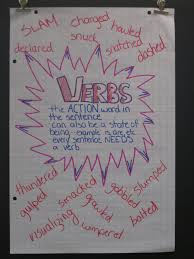 SLAM
charged
howled
snuck
snatched
declared
dashed
VERBS
the ACTION word in
the sentence
can also be a state of
being...example is are, etc
every sentence NEEDS
a verb.
thundered
smacked
gobbled
slumped
gulped
growled
batted
visualizing
whimpered